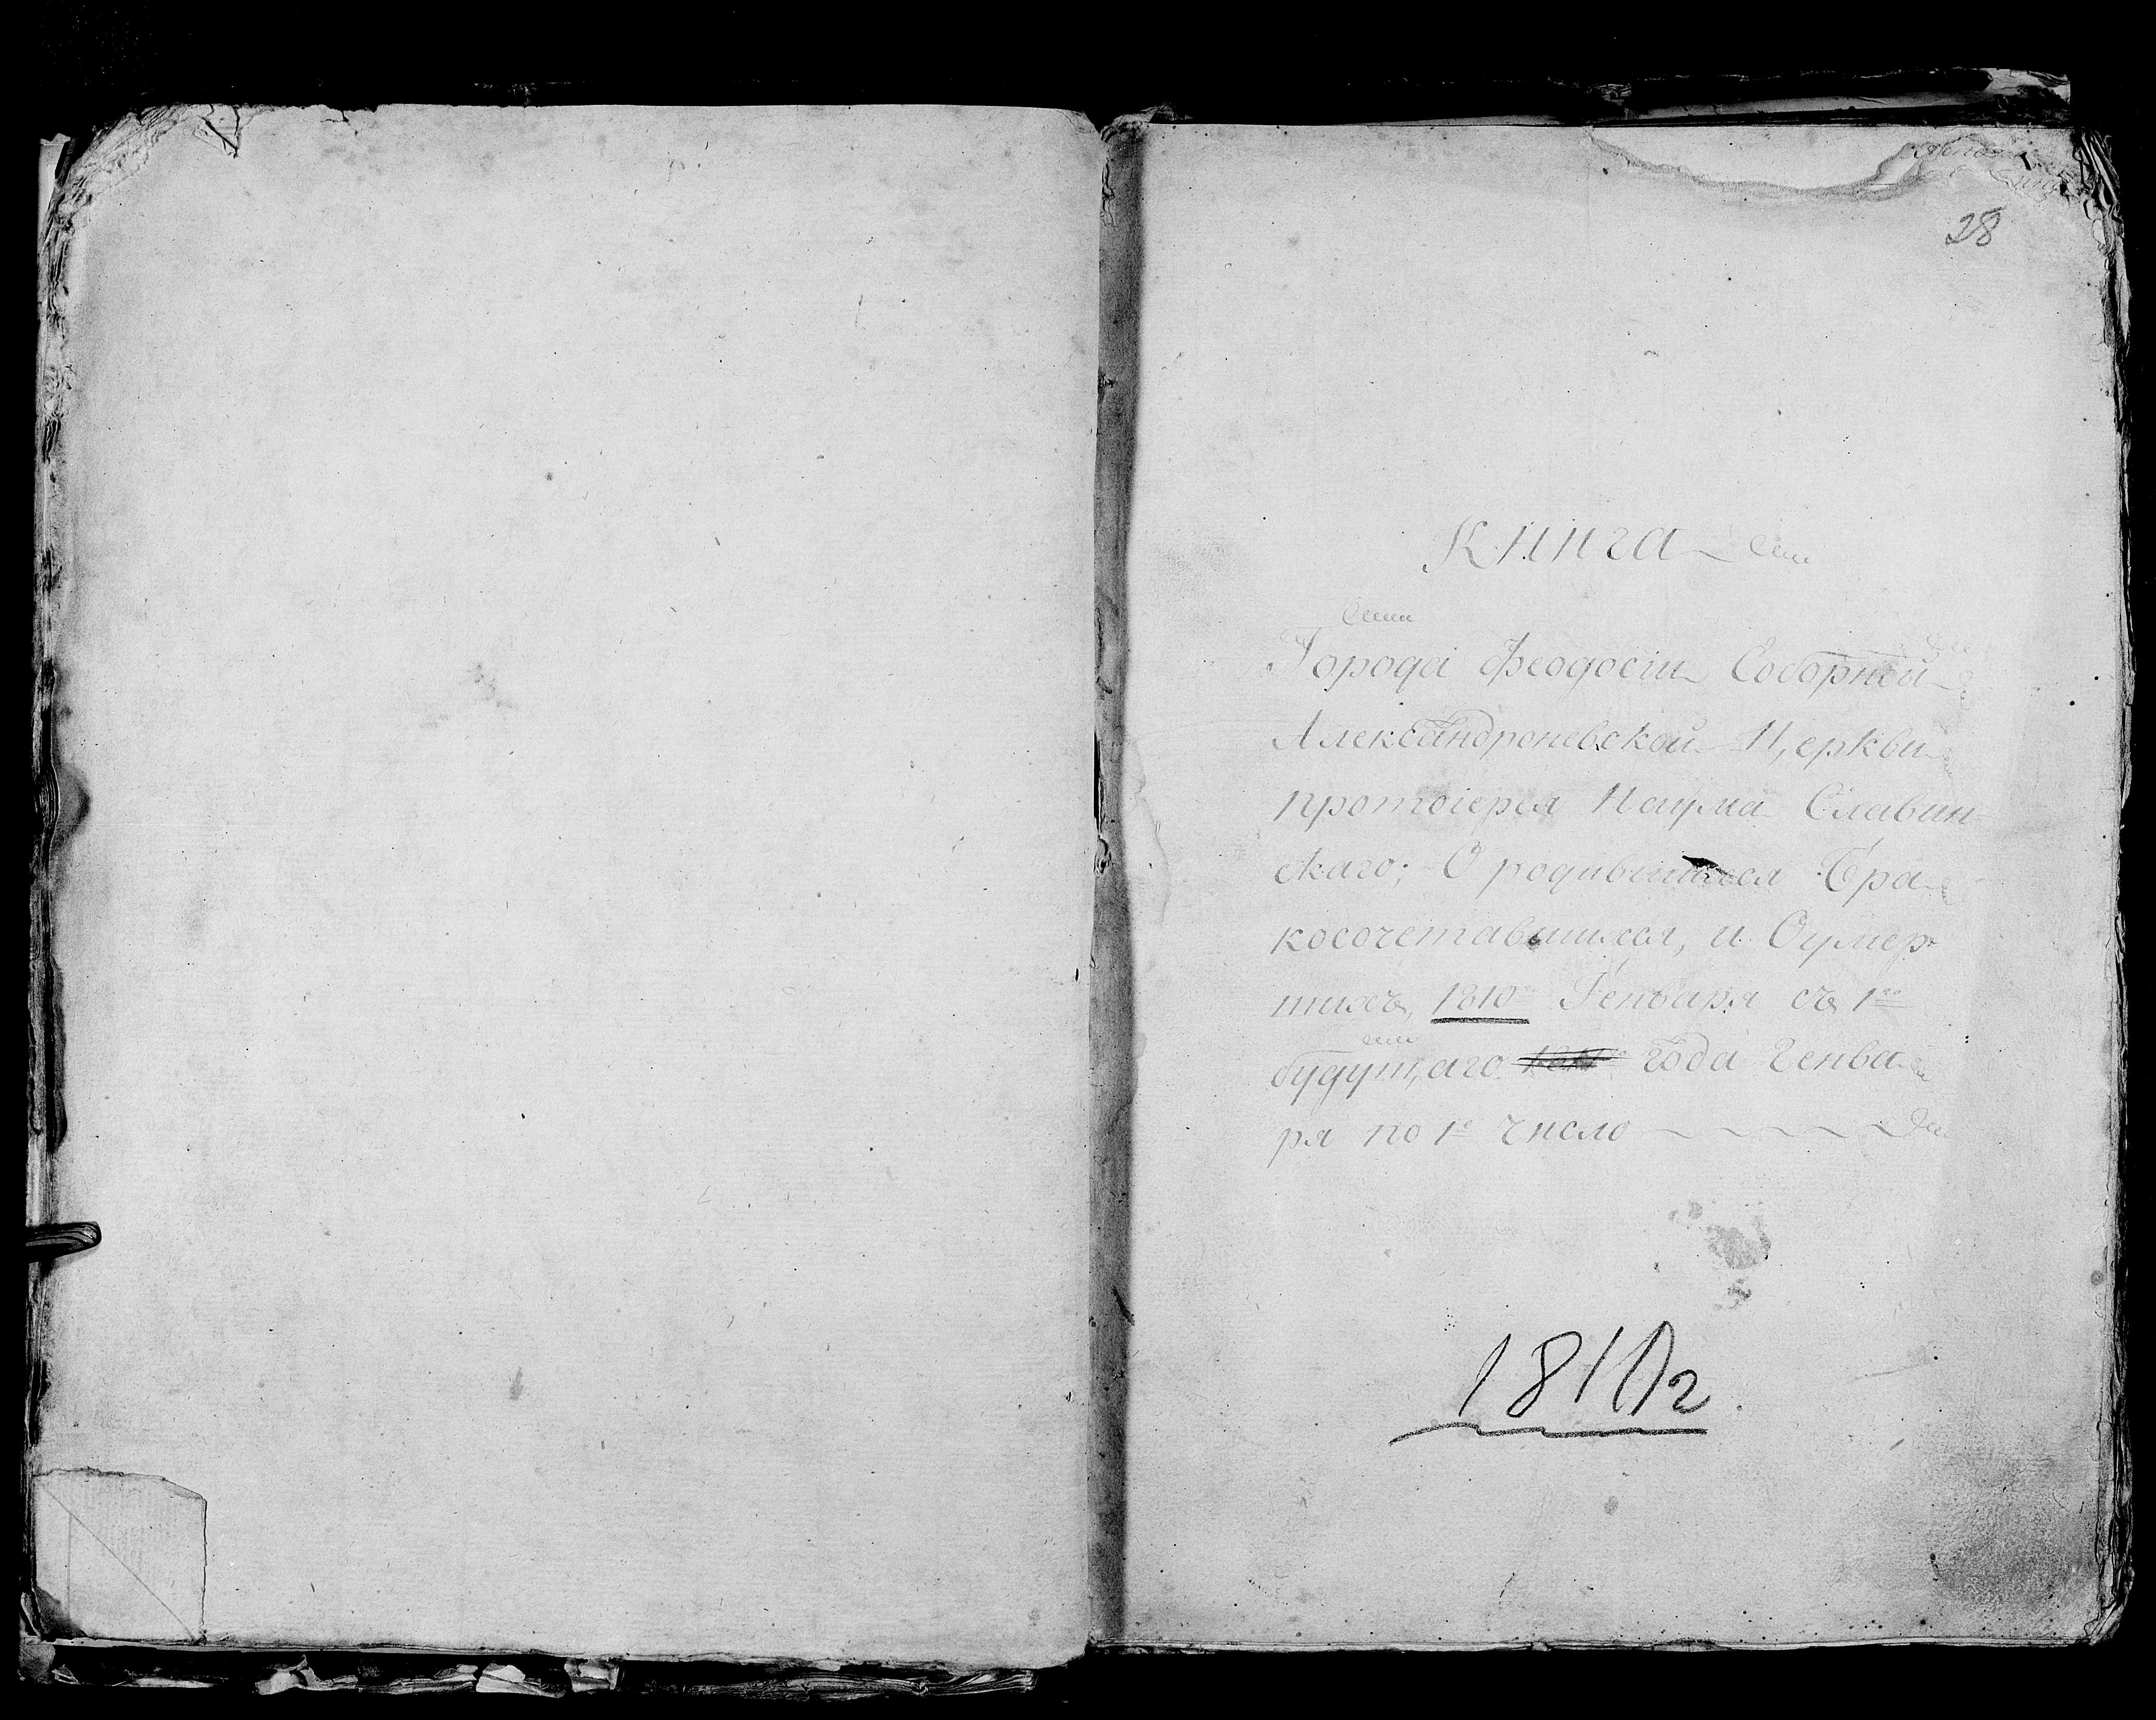 28
Книга
Города Феодосіи Соборной
Александроневской Церкви
протоіерея Наума Славин
скаго; О родившихся Бра
косочетавшихся, и Оумер
шихъ, 1810го Генваря съ 1го
будущаго 1811го года Генва
ря по 1е число
1810 г